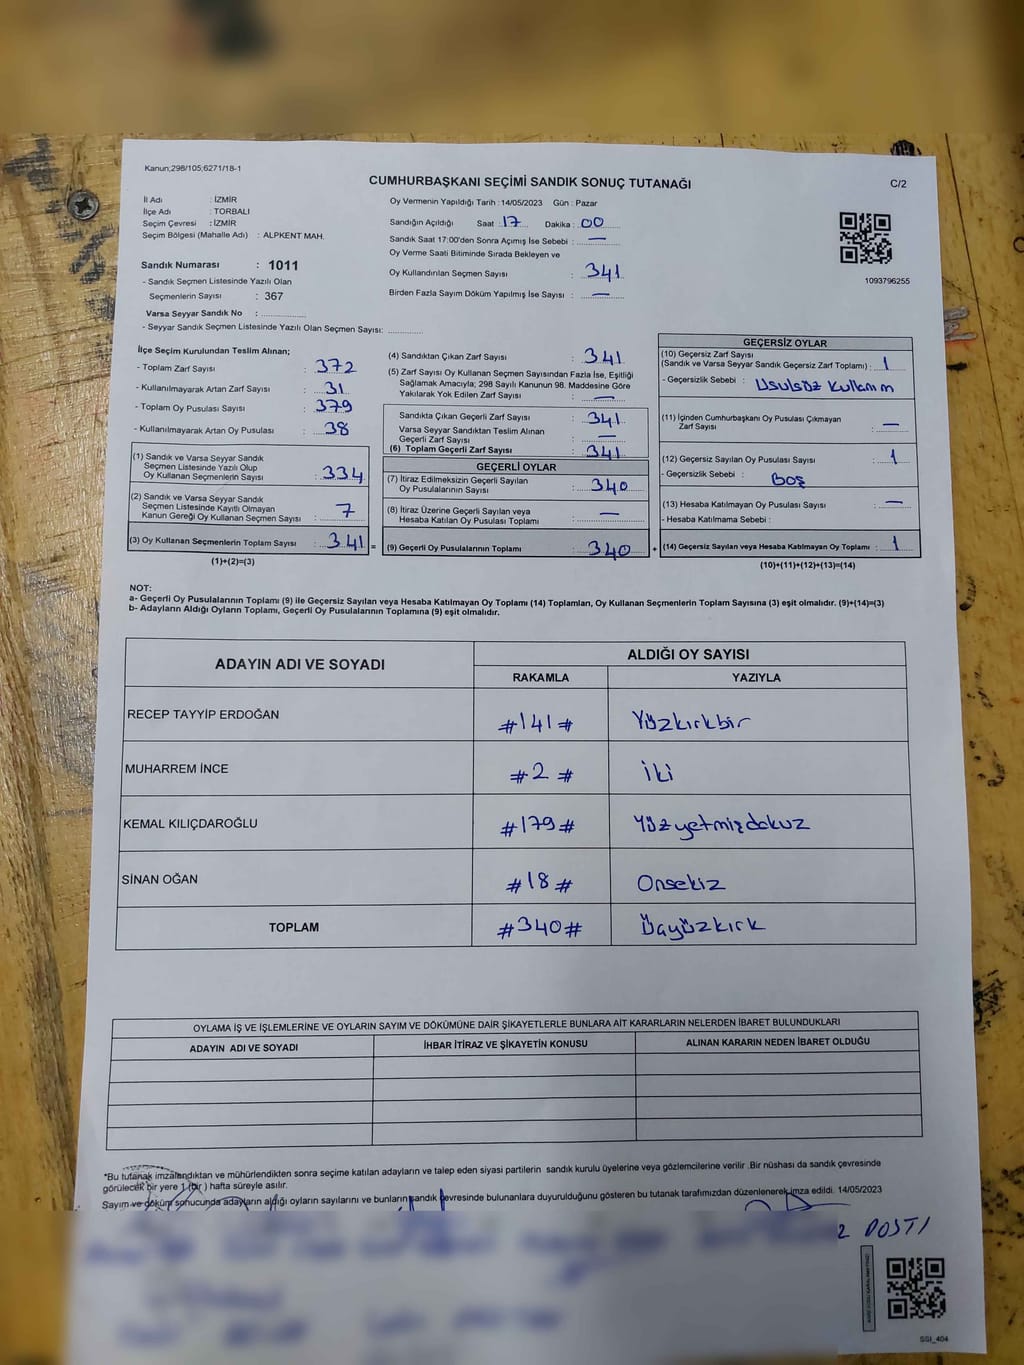 Kanun;298/105;6271/18-1
CUMHURBAŞKANI SEÇİMİ SANDIK SONUÇ TUTANAĞI
C/2
İl Adı : İZMİR
İlçe Adı : TORBALI
Seçim Çevresi : İZMİR
Seçim Bölgesi (Mahalle Adı) : ALPKENT MAH.
Sandık Numarası : 1011
- Sandık Seçmen Listesinde Yazılı Olan
Seçmenlerin Sayısı : 367
Varsa Seyyar Sandık No :
- Seyyar Sandık Seçmen Listesinde Yazılı Olan Seçmen Sayısı:
Oy Vermenin Yapıldığı Tarih : 14/05/2023 Gün : Pazar
Sandığın Açıldığı Saat : 17 Dakika : 00
Sandık Saat 17:00'den Sonra Açımış İse Sebebi : —
Oy Verme Saati Bitiminde Sırada Bekleyen ve
Oy Kullandırılan Seçmen Sayısı : 341
Birden Fazla Sayım Döküm Yapılmış İse Sayısı : —
1093796255
İlçe Seçim Kurulundan Teslim Alınan;
- Toplam Zarf Sayısı : 372
- Kullanılmayarak Artan Zarf Sayısı : 31
- Toplam Oy Pusulası Sayısı : 379
- Kullanılmayarak Artan Oy Pusulası : 38
(1) Sandık ve Varsa Seyyar Sandık
Seçmen Listesinde Yazılı Olup
Oy Kullanan Seçmenlerin Sayısı : 334
(2) Sandık ve Varsa Seyyar Sandık
Seçmen Listesinde Kayıtlı Olmayan
Kanun Gereği Oy Kullanan Seçmen Sayısı : 7
(3) Oy Kullanan Seçmenlerin Toplam Sayısı : 341 =
(1)+(2)=(3)
(4) Sandıktan Çıkan Zarf Sayısı : 341
(5) Zarf Sayısı Oy Kullanan Seçmen Sayısından Fazla İse, Eşitliği
Sağlamak Amacıyla; 298 Sayılı Kanunun 98. Maddesine Göre
Yakılarak Yok Edilen Zarf Sayısı : —
Sandıkta Çıkan Geçerli Zarf Sayısı : 341
Varsa Seyyar Sandıktan Teslim Alınan
Geçerli Zarf Sayısı : —
(6) Toplam Geçerli Zarf Sayısı : 341
GEÇERLİ OYLAR
(7) İtiraz Edilmeksizin Geçerli Sayılan
Oy Pusulalarının Sayısı : 340
(8) İtiraz Üzerine Geçerli Sayılan veya
Hesaba Katılan Oy Pusulası Toplamı : —
(9) Geçerli Oy Pusulalarının Toplamı : 340 +
GEÇERSİZ OYLAR
(10) Geçersiz Zarf Sayısı
(Sandık ve Varsa Seyyar Sandık Geçersiz Zarf Toplamı) : 1
- Geçersizlik Sebebi : Usulsüz Kullanım
(11) İçinden Cumhurbaşkanı Oy Pusulası Çıkmayan
Zarf Sayısı : —
(12) Geçersiz Sayılan Oy Pusulası Sayısı : 1
- Geçersizlik Sebebi : Boş
(13) Hesaba Katılmayan Oy Pusulası Sayısı : —
- Hesaba Katılmama Sebebi :
(14) Geçersiz Sayılan veya Hesaba Katılmayan Oy Toplamı : 1
(10)+(11)+(12)+(13)=(14)
NOT:
a- Geçerli Oy Pusulalarının Toplamı (9) ile Geçersiz Sayılan veya Hesaba Katılmayan Oy Toplamı (14) Toplamları, Oy Kullanan Seçmenlerin Toplam Sayısına (3) eşit olmalıdır. (9)+(14)=(3)
b- Adayların Aldığı Oyların Toplamı, Geçerli Oy Pusulalarının Toplamına (9) eşit olmalıdır.
ADAYIN ADI VE SOYADI
ALDIĞI OY SAYISI
RAKAMLA YAZIYLA
RECEP TAYYİP ERDOĞAN #141# Yüzkırkbir
MUHARREM İNCE #2# İki
KEMAL KILIÇDAROĞLU #179# Yüzyetmişdokuz
SİNAN OĞAN #18# Onsekiz
TOPLAM #340# Üçyüzkırk
OYLAMA İŞ VE İŞLEMLERİNE VE OYLARIN SAYIM VE DÖKÜMÜNE DAİR ŞİKAYETLERLE BUNLARA AİT KARARLARIN NELERDEN İBARET BULUNDUKLARI
ADAYIN ADI VE SOYADI İHBAR İTİRAZ VE ŞİKAYETİN KONUSU ALINAN KARARIN NEDEN İBARET OLDUĞU
*Bu tutanak imzalandıktan ve mühürlendikten sonra seçime katılan adayların ve talep eden siyasi partilerin sandık kurulu üyelerine veya gözlemcilerine verilir .Bir nüshası da sandık çevresinde
görülecek bir yere 1 (bir ) hafta süreyle asılır.
Sayım ve döküm sonucunda adayların aldığı oyların sayılarını ve bunların sandık çevresinde bulunanlara duyurulduğunu gösteren bu tutanak tarafımızdan düzenlenerek imza edildi. 14/05/2023
DOSTI
SSI_404